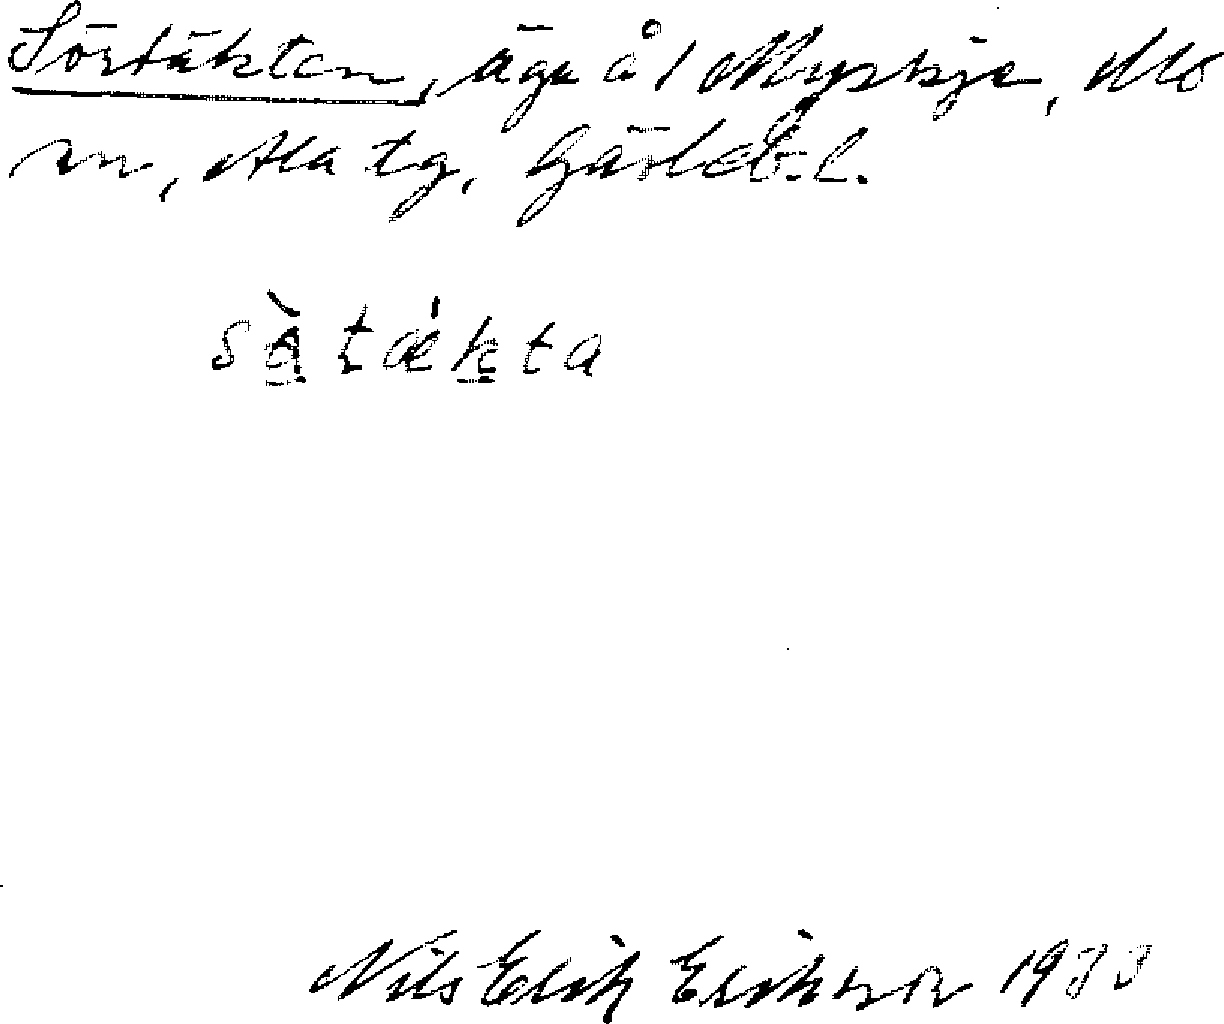 Sörtäkten, äga å 1 Myskje, Mo
sn, Ala tg, Gävleb. l.
sà tækta
Nils Erik Eriksson 1933